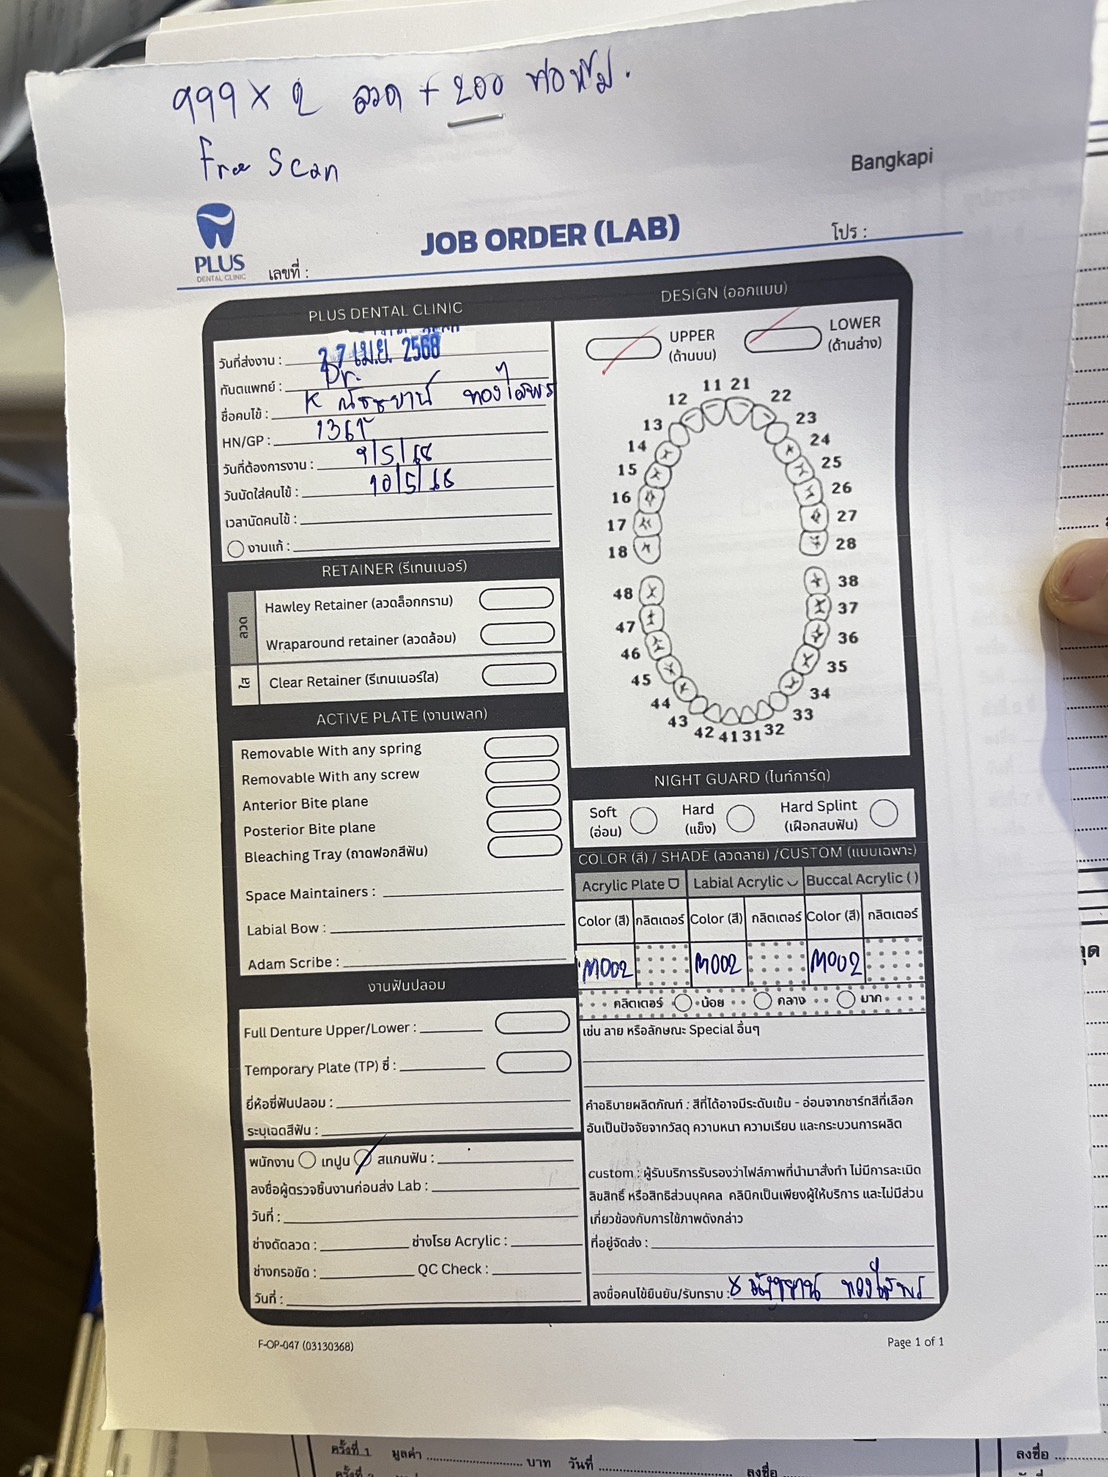 999 x 2 ลวด + 200 ท่อฟิม.
Free Scan
Bangkapi
PLUS
DENTAL CLINIC
เลขที่ :
JOB ORDER (LAB)
โปร :
PLUS DENTAL CLINIC
วันที่ส่งงาน : 27 เม.ย. 2568
ทันตแพทย์ : Dr.
ชื่อคนไข้ : K
HN/GP :
วันที่ต้องการงาน : 9/5/68
วันนัดใส่คนไข้ : 10/5/68
เวลานัดคนไข้ :
งานแก้ :
RETAINER (รีเทนเนอร์)
ลวด
Hawley Retainer (ลวดล็อกกราม)
Wraparound retainer (ลวดล้อม)
ใส
Clear Retainer (รีเทนเนอร์ใส)
ACTIVE PLATE (งานเพลท)
Removable With any spring
Removable With any screw
Anterior Bite plane
Posterior Bite plane
Bleaching Tray (ถาดฟอกสีฟัน)
Space Maintainers :
Labial Bow :
Adam Scribe :
งานฟันปลอม
Full Denture Upper/Lower :
Temporary Plate (TP) ซี่ :
ยี่ห้อซี่ฟันปลอม :
ระบุเฉดสีฟัน :
พนักงาน เทปูน สแกนฟัน :
ลงชื่อผู้ตรวจชิ้นงานก่อนส่ง Lab :
วันที่ :
ช่างดัดลวด : ช่างโรย Acrylic :
ช่างกรอขัด : QC Check :
วันที่ :
DESIGN (ออกแบบ)
UPPER
(ด้านบน)
LOWER
(ด้านล่าง)
11 21
12 22
13 23
14 24
15 25
16 26
17 27
18 28
48 38
47 37
46 36
45 35
44 34
43 33
42 41 31 32
NIGHT GUARD (ไนท์การ์ด)
Soft
(อ่อน)
Hard
(แข็ง)
Hard Splint
(เฝือกสบฟัน)
COLOR (สี) / SHADE (ลวดลาย) /CUSTOM (แบบเฉพาะ)
Acrylic Plate Labial Acrylic Buccal Acrylic ( )
Color (สี) กลิตเตอร์ Color (สี) กลิตเตอร์ Color (สี) กลิตเตอร์
M002 M002 M002
กลิตเตอร์ น้อย กลาง มาก
เช่น ลาย หรือลักษณะ Special อื่นๆ
คำอธิบายผลิตภัณฑ์ : สีที่ได้อาจมีระดับเข้ม - อ่อนจากชาร์ทสีที่เลือก
อันเป็นปัจจัยจากวัสดุ ความหนา ความเรียบ และกระบวนการผลิต
custom : ผู้รับบริการรับรองว่าไฟล์ภาพที่นำมาสั่งทำ ไม่มีการละเมิด
ลิขสิทธิ์ หรือสิทธิส่วนบุคคล คลินิกเป็นเพียงผู้ให้บริการ และไม่มีส่วน
เกี่ยวข้องกับการใช้ภาพดังกล่าว
ที่อยู่จัดส่ง :
ลงชื่อคนไข้ยืนยัน/รับทราบ :
F-OP-047 (03130368)
Page 1 of 1
ครั้งที่ 1 มูลค่า บาท วันที่
ลงชื่อ
ลงชื่อ